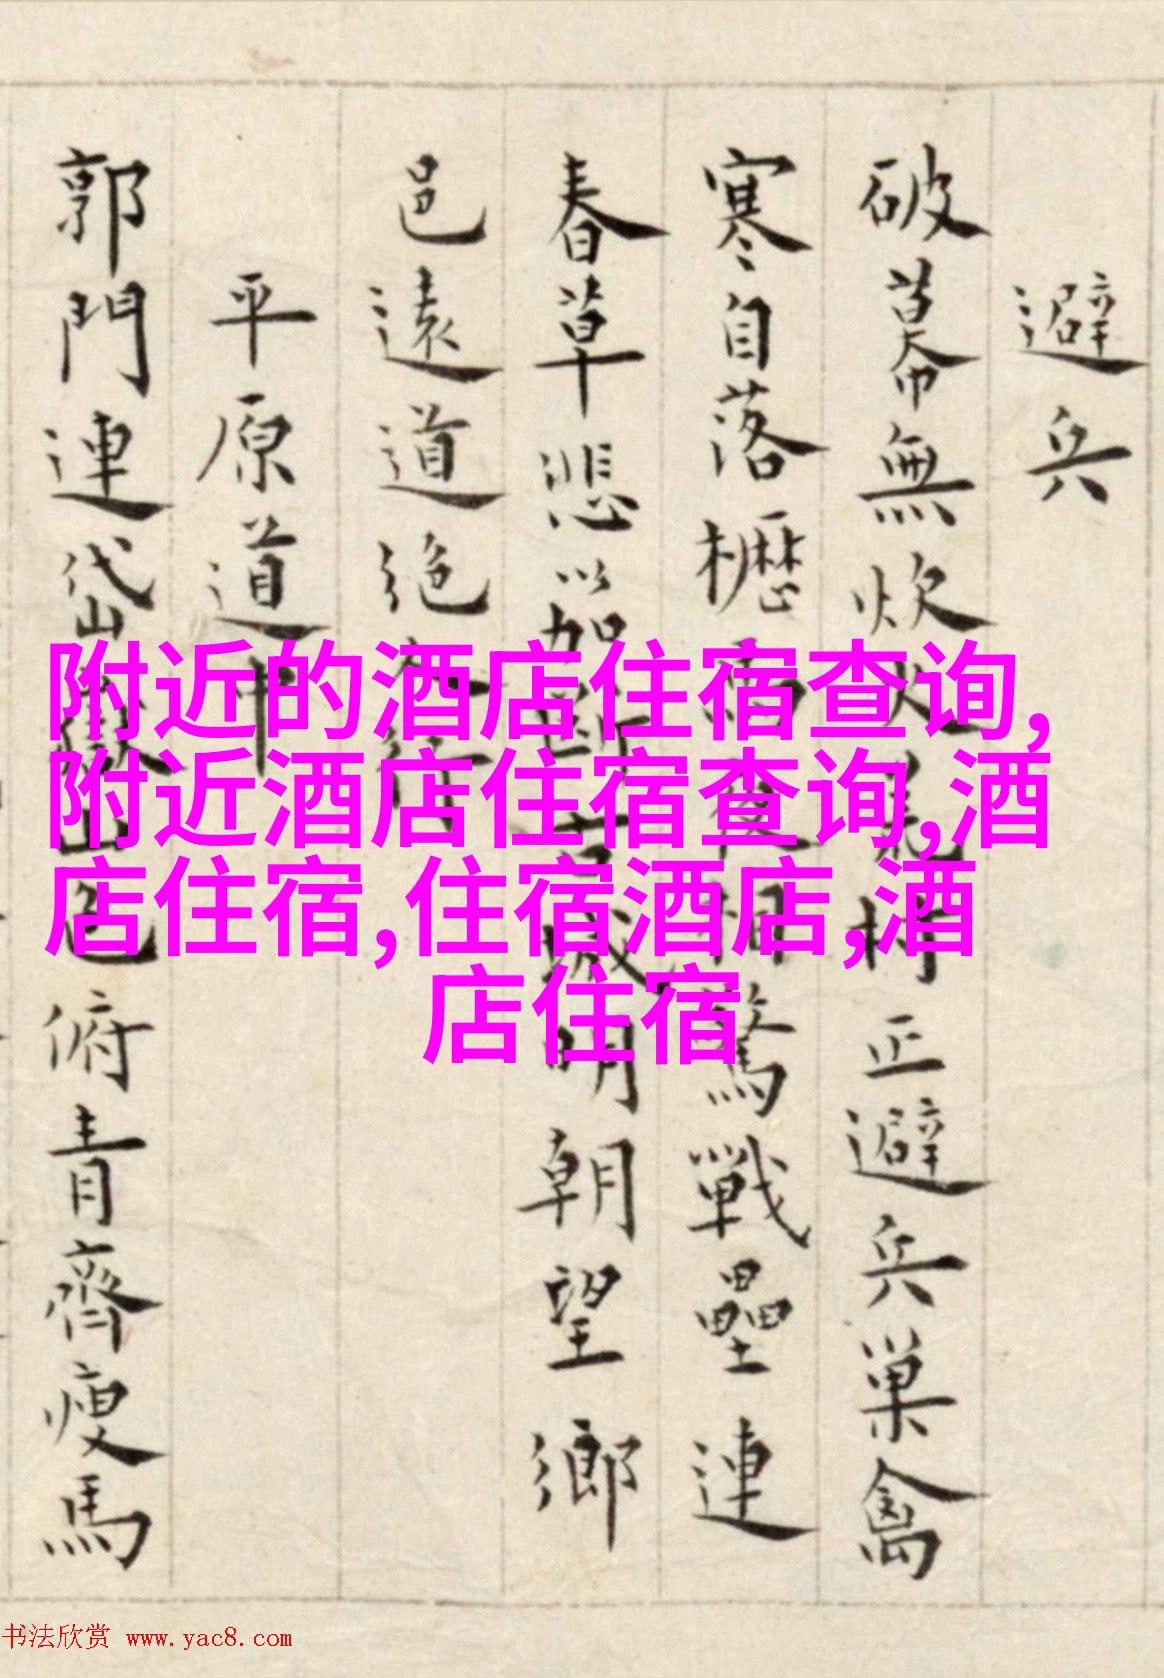 避兵
破幕無炊火村正避兵巢禽
寒自落櫪馬夜相驚戰壘連
春草悲笳斷古城明朝望鄉
邑遠道絕行
平原道中
郭門連岱嶽山色俯青齊瘦馬
附近的酒店住宿查询,
附近酒店住宿查询,酒
店住宿,住宿酒店,酒
店住宿
书法欣赏 www.yac8.com